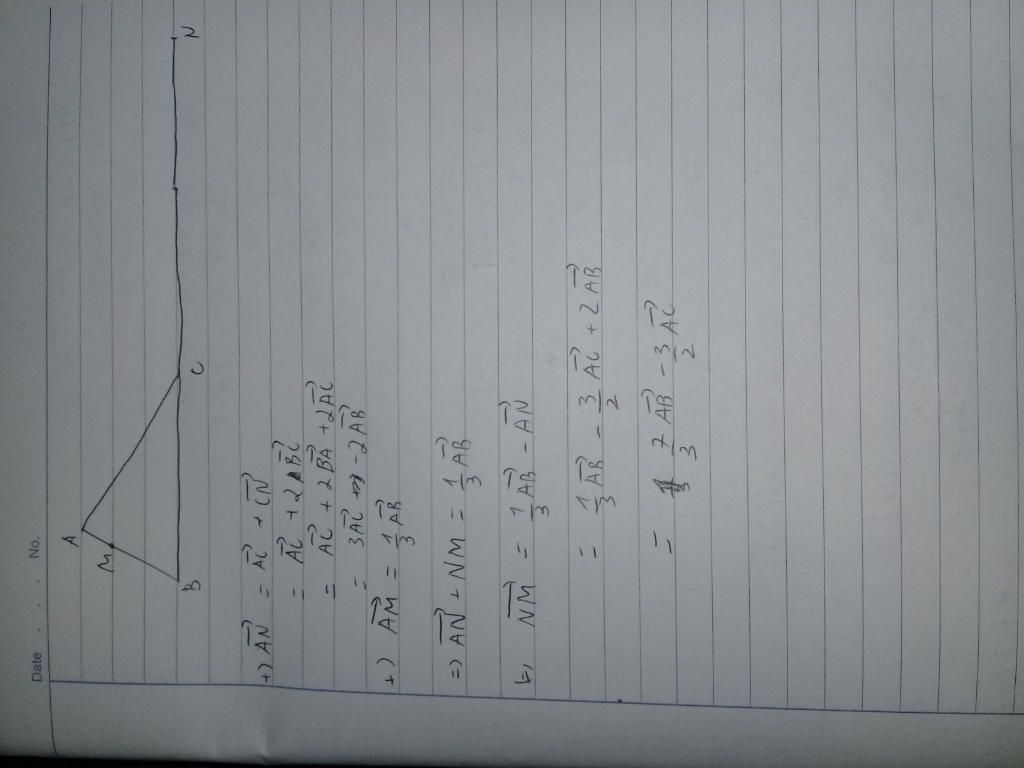 Date . . . No.
A
M
B
C
N
+) $\overrightarrow{AN} = \overrightarrow{AC} + \overrightarrow{CN}$
$= \overrightarrow{AC} + 2\overrightarrow{BC}$
$= \overrightarrow{AC} + 2\overrightarrow{BA} + 2\overrightarrow{AC}$
$= 3\overrightarrow{AC} - 2\overrightarrow{AB}$
+) $\overrightarrow{AM} = \frac{1}{3}\overrightarrow{AB}$
=) $\overrightarrow{AN} + NM = \frac{1}{3}\overrightarrow{AB}$
b, $\overrightarrow{NM} = \frac{1}{3}\overrightarrow{AB} - \overrightarrow{AN}$
$= \frac{1}{3}\overrightarrow{AB} - \frac{3}{2}\overrightarrow{AC} + 2\overrightarrow{AB}$
$= \frac{7}{3}\overrightarrow{AB} - \frac{3}{2}\overrightarrow{AC}$